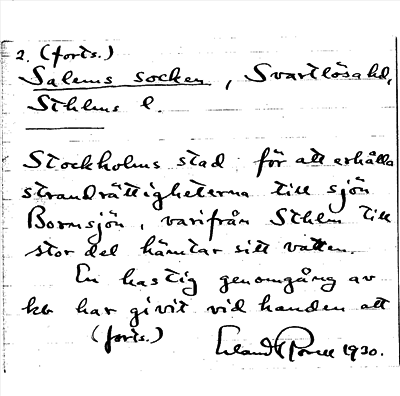 2. (forts.)
Salems socken, Svartlösa hd,
Sthlms l.
Stockholms stad för att erhålla
strandrättigheterna till sjön
Bornsjön, varifrån Sthlm till
stor del hämtar sitt vatten.
En hastig genomgång av
kb har givit vid handen att
(forts.)
1930.